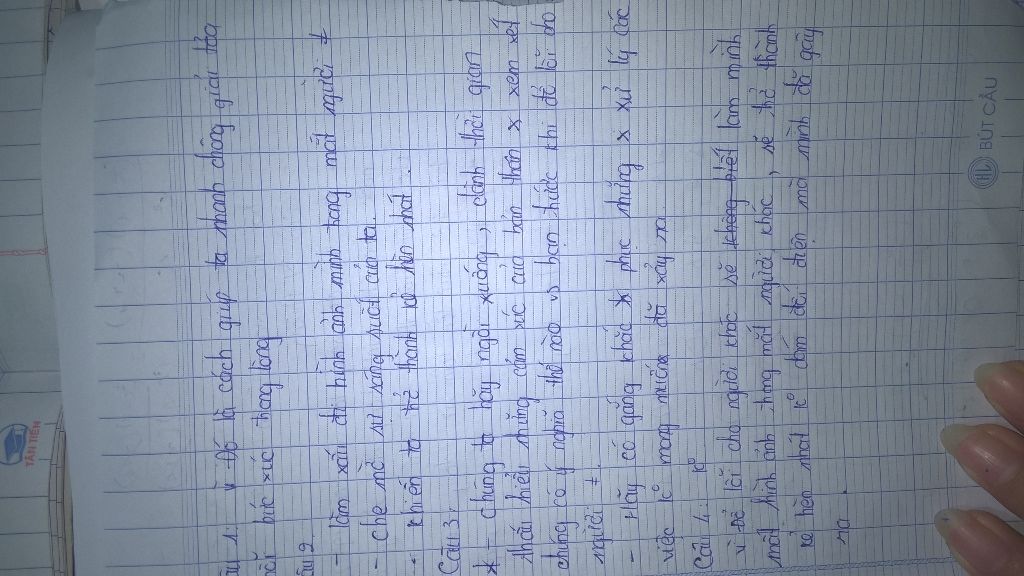 âu 1: vì Đó là cách giúp ta nhanh chóng giải tỏa
nỗi bức xúc trong lòng
âu 2
- làm xấu đi hình ảnh mình trong mắt người ≠
- che mờ sự sáng suốt của ta.
- khiến ta trở thành kẻ hèn nhát.
Câu 3:
* - chúng ta hãy ngồi xuống, dành thời gian
thấu hiểu những cảm xúc của bản thân x xem xét
chúng có ý nghĩa thế nào vs bạn trước khi đổ lỗi cho
người ≠.
- Hãy cố gắng khắc phục những x xử lý các
việc ko mong muốn đã xảy ra.
Câu 4: ko
vì đổ lỗi cho người khác sẽ không biết làm mình
mất hình ảnh trong mắt người khác, sẽ trở thành
kẻ hèn nhát ko dám đối diện mà mình đã gây
ra.
BÚT CÂU
TÂN TIẾN